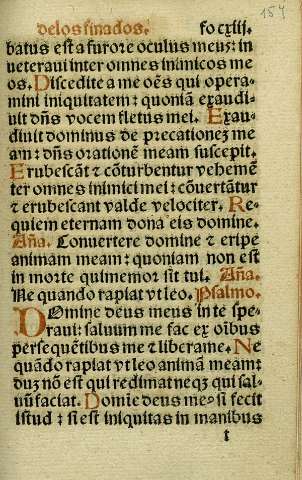 159
delos finados. fo cxiij.
batus est a furore oculus meus: in
ueteraui inter omnes inimicos me
os. Discedite a me oēs qui opera-
mini iniquitatem: quoniā exaudi-
uit dn̄s vocem fletus mei. Exau-
diuit dominus de precationeȝ me
am: dn̄s orationē meam suscepit.
Erubescāt ⁊ cōturbentur vehemē
ter omnes inimici mei: cōuertātur
⁊ erubescant valde velociter. Re-
quiem eternam dona eis domine.
Aña. Conuertere domine ⁊ eripe
animam meam: quoniam non est
in morte qui memor sit tui. Aña.
Ne quando rapiat vt leo. Psalmo.
DOmine deus meus in te spe-
raui: saluum me fac ex oībus
persequētibus me ⁊ libera me. Ne
quādo rapiat vt leo animā meam:
duȝ nō est qui redimat neqȝ qui sal-
uū faciat. Domīe deus meꝰ si feci
istud: si est iniquitas in manibus
t